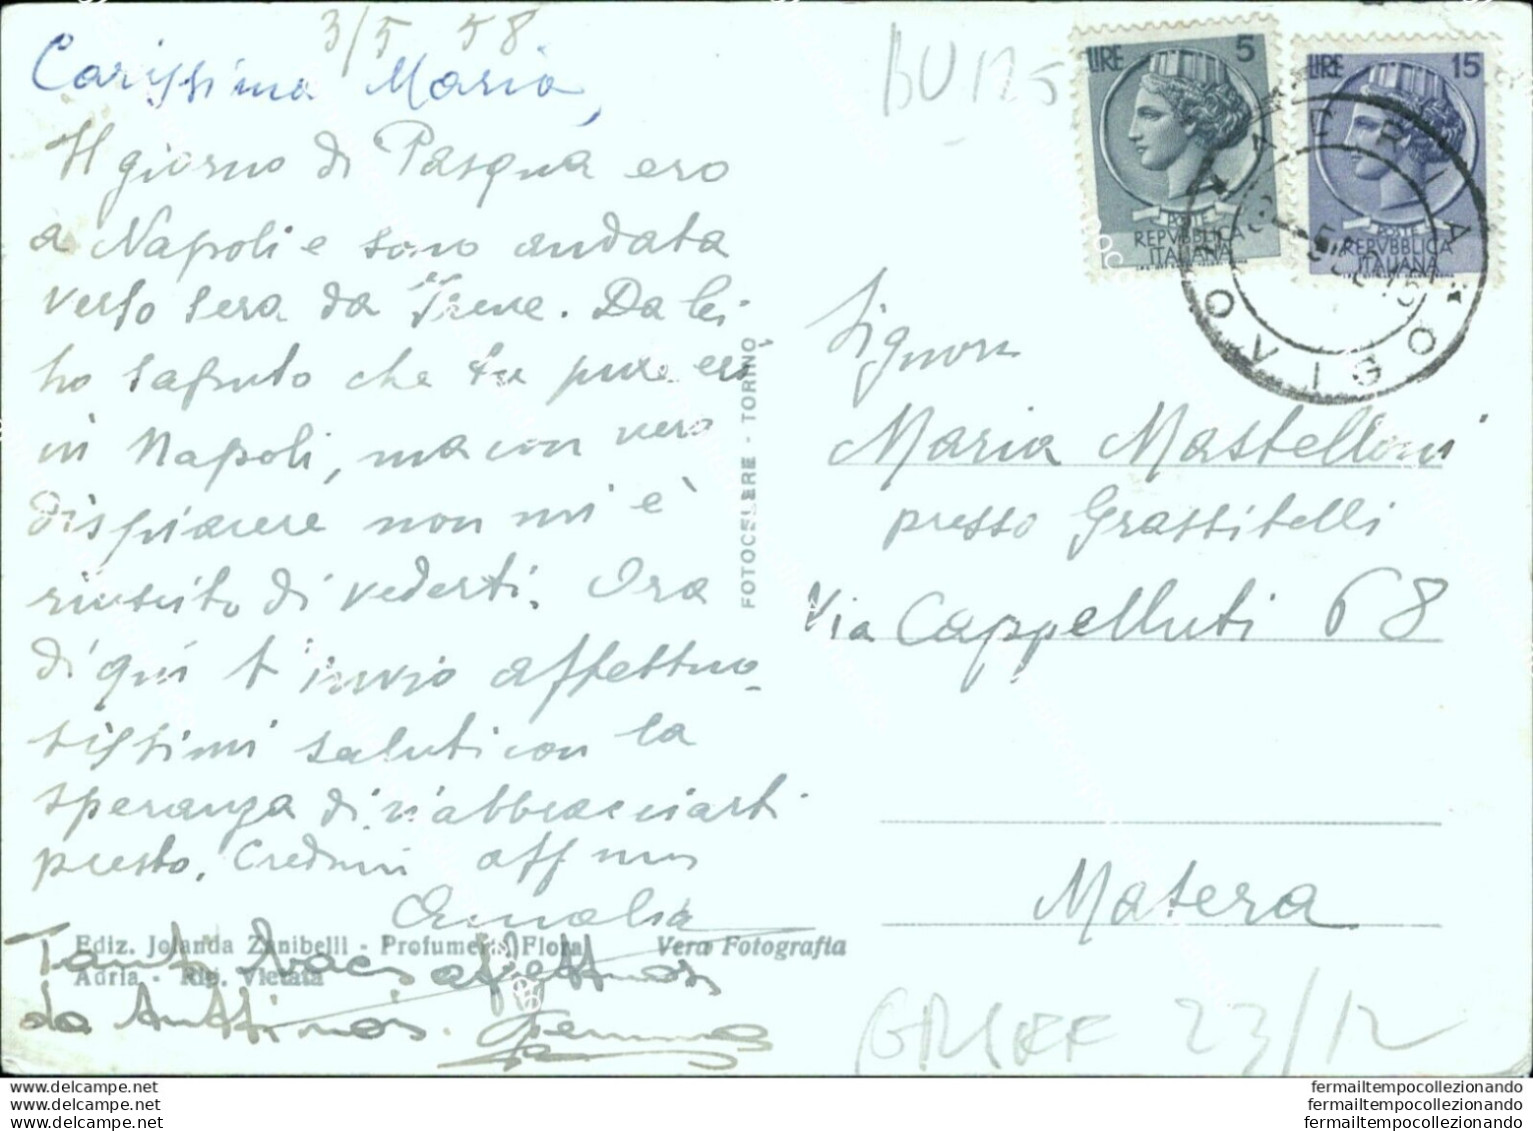 3/5 58
Carissima Maria,
Il giorno di Pasqua ero
a Napoli e sono andata
verso sera da Irene. Da lei
ho saputo che tu pure eri
in Napoli, ma con vero
dispiacere non mi è
riuscito di vederti. Ora
di qui t'invio affettuo-
sissimi saluti con la
speranza di riabbracciarti
presto. Credimi aff.ma
Amalia
Tanti baci affettuosi
da
Ediz. Jolanda Zanibelli - Profumeria Flora
Adria - Rip. Vietata
Vera Fotografia
FOTOCELERE - TORINO
BU125
LIRE 5
POSTE
REPVBBLICA
ITALIANA
LIRE 15
POSTE
REPVBBLICA
ITALIANA
ADRIA
ROVIGO
Signora
Maria Mastelloni
presso Grassitelli
Via Cappelluti 68
Matera
23/12
www.delcampe.net
www.delcampe.net
www.delcampe.net
fermailtempocollezionando
fermailtempocollezionando
fermailtempocollezionando